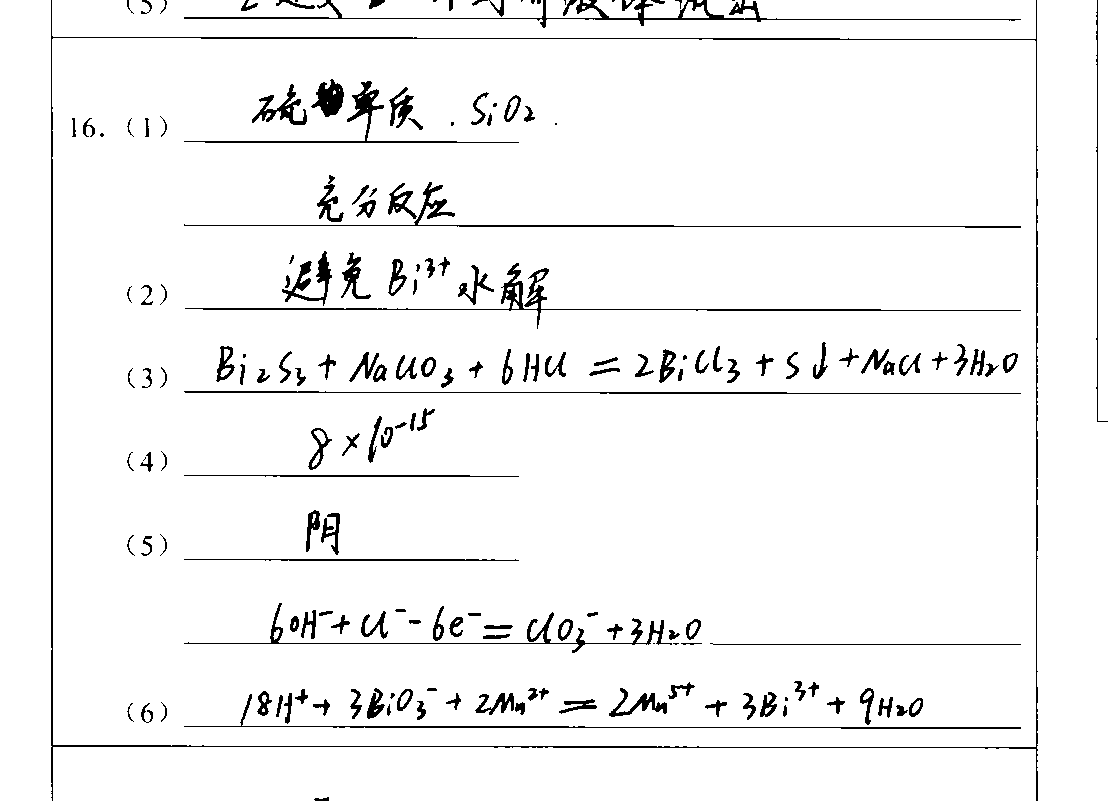 (5)
16. (1) 硫单质 . SiO₂ .
充分反应
(2) 避免 Bi³⁺ 水解
(3) Bi₂S₃ + NaClO₃ + 6HCl = 2BiCl₃ + S↓ + NaCl + 3H₂O
(4) 8×10⁻¹⁵
(5) 阴
6OH⁻ + Cl⁻ - 6e⁻ = ClO₃⁻ + 3H₂O
(6) 18H⁺ + 3BiO₃⁻ + 2Mn²⁺ = 2Mn⁵⁺ + 3Bi³⁺ + 9H₂O